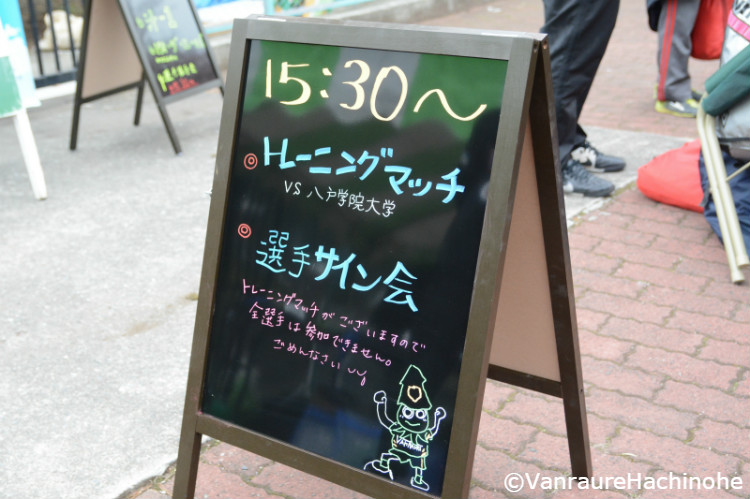 15:30～
◎トレーニングマッチ
VS 八戸学院大学
◎選手サイン会
トレーニングマッチがございますので
全選手は参加できません。
ごめんなさい
©VanraureHachinohe